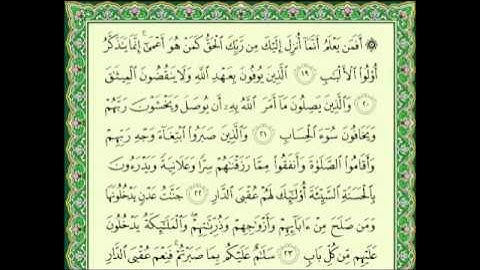 ۞ أَفَمَن يَعْلَمُ أَنَّمَا أُنزِلَ إِلَيْكَ مِن رَّبِّكَ الْحَقُّ كَمَنْ هُوَ أَعْمَىٰ ۚ إِنَّمَا يَتَذَكَّرُ
أُوْلُوا۟ الْأَلْبَٰبِ ١٩ الَّذِينَ يُوفُونَ بِعَهْدِ اللَّهِ وَلَا يَنقُضُونَ الْمِيثَٰقَ
٢٠ وَالَّذِينَ يَصِلُونَ مَا أَمَرَ اللَّهُ بِهِۦ أَن يُوصَلَ وَيَخْشَوْنَ رَبَّهُمْ
وَيَخَافُونَ سُوٓءَ الْحِسَابِ ٢١ وَالَّذِينَ صَبَرُوا۟ ابْتِغَآءَ وَجْهِ رَبِّهِمْ
وَأَقَامُوا۟ الصَّلَوٰةَ وَأَنفَقُوا۟ مِمَّا رَزَقْنَٰهُمْ سِرًّا وَعَلَانِيَةً وَيَدْرَءُونَ
بِالْحَسَنَةِ السَّيِّئَةَ أُوْلَٰٓئِكَ لَهُمْ عُقْبَى الدَّارِ ٢٢ جَنَّٰتُ عَدْنٍ يَدْخُلُونَهَا
وَمَن صَلَحَ مِنْ ءَابَآئِهِمْ وَأَزْوَٰجِهِمْ وَذُرِّيَّٰتِهِمْ ۖ وَالْمَلَٰٓئِكَةُ يَدْخُلُونَ
عَلَيْهِم مِّن كُلِّ بَابٍ ٢٣ سَلَٰمٌ عَلَيْكُم بِمَا صَبَرْتُمْ ۚ فَنِعْمَ عُقْبَى الدَّارِ